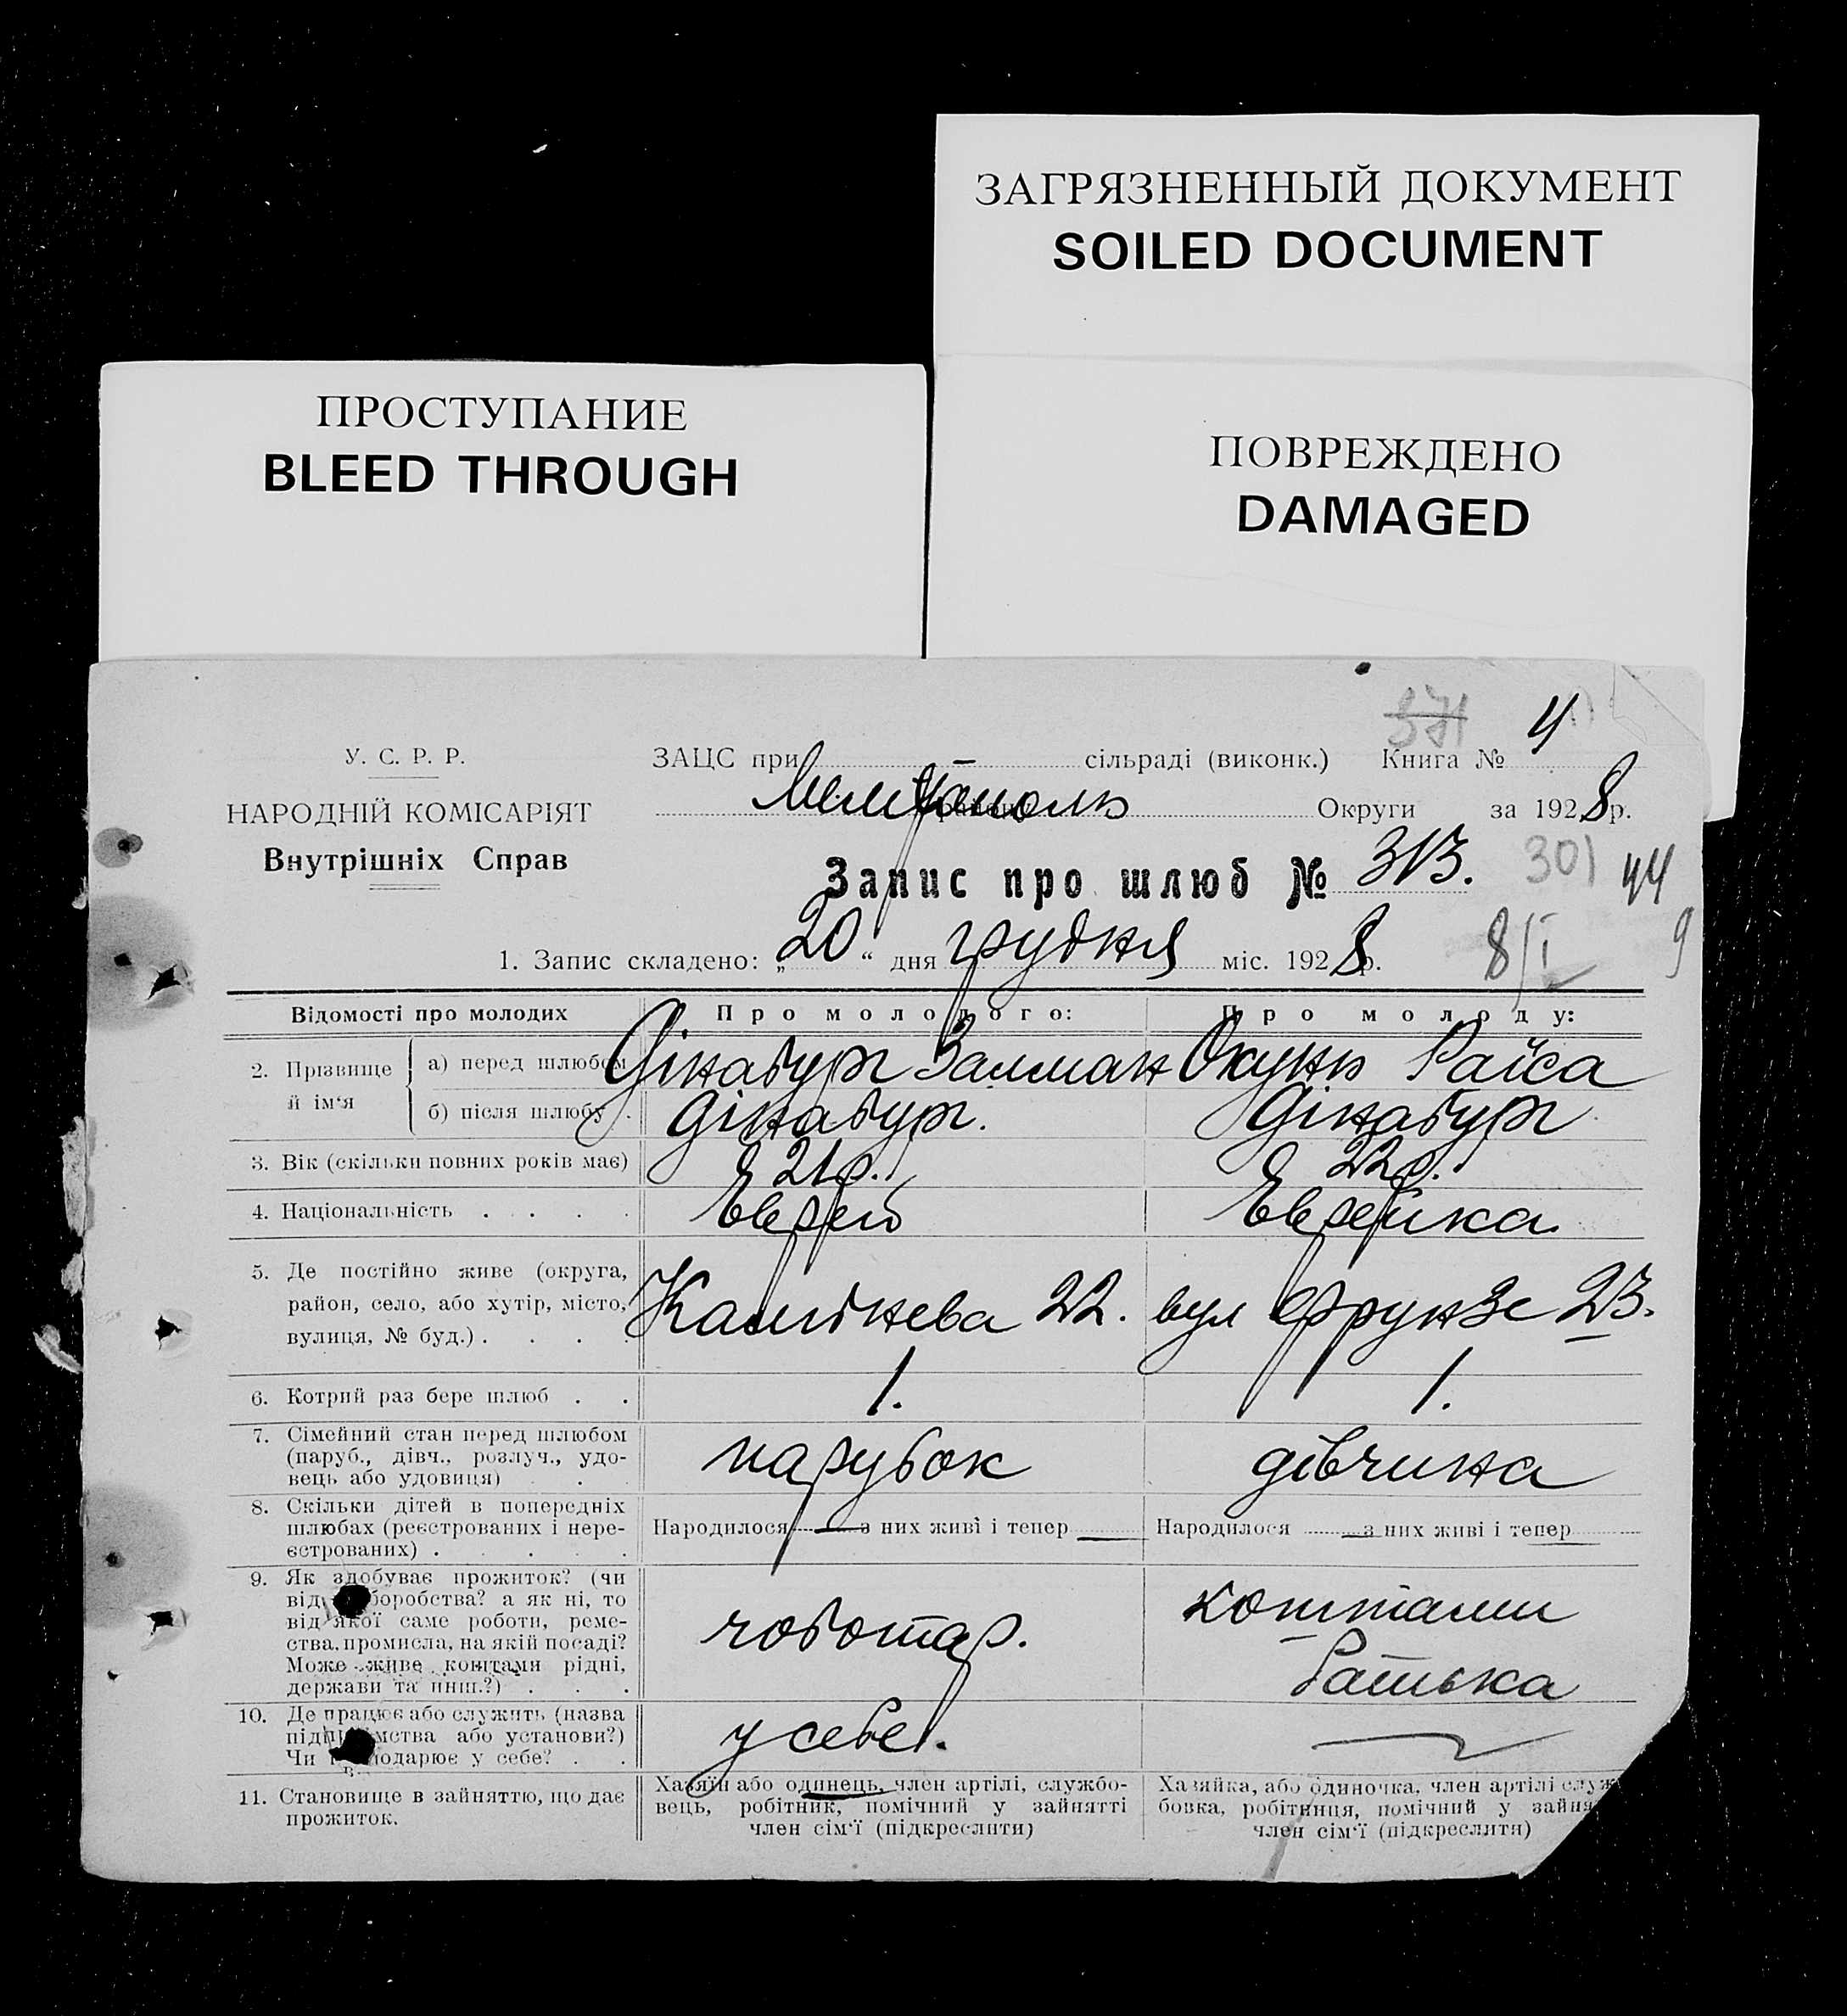 ЗАГРЯЗНЕННЫЙ ДОКУМЕНТ
SOILED DOCUMENT
ПРОСТУПАНИЕ
BLEED THROUGH
ПОВРЕЖДЕНО
DAMAGED
371 4
У. С. Р. Р.
ЗАЦС при сільраді (виконк.) Книга №
НАРОДНІЙ КОМІСАРІЯТ
Мелітополь району Округи за 1928 р.
Внутрішніх Справ
Запис про шлюб № 313. 301 44
1. Запис складено: „20“ дня грудня міс. 1928 р. 8/I 9
Відомості про молодих
Про молодого:
Про молоду:
2. Прізвище й ім'я
а) перед шлюбом
Дінабург Залман
Окунь Раїса
б) після шлюбу .
Дінабург.
Дінабург
3. Вік (скільки повних років має)
21 р.
22 р.
4. Національність . . . .
Еврей
Еврейка.
5. Де постійно живе (округа,
район, село, або хутір, місто,
вулиця, № буд.) . . . .
22.
вул Фрунзе 23.
6. Котрий раз бере шлюб . .
1.
1.
7. Сімейний стан перед шлюбом
(паруб., дівч., розлуч., удо-
вець або удовиця) . .
парубок
дівчина
8. Скільки дітей в попередніх
шлюбах (реєстрованих і нере-
єстрованих) . . . . .
Народилося — з них живі і тепер —
Народилося — з них живі і тепер —
9. Як здобуває прожиток? (чи
від боробства? а як ні, то
від якої саме роботи, реме-
ства, промисла, на якій посаді?
Може живе коштами рідні,
держави та инш.?) . . .
чоботар.
коштами
батька
10. Де працює або служить (назва
підп мства або установи?)
Чи подарює у себе? . .
у себе.
—
11. Становище в зайняттю, що дає
прожиток.
Хазяїн або одинець, член артілі, службо-
вець, робітник, помічний у зайнятті
член сім'ї (підкреслити)
Хазяйка, або одиночка, член артілі служ
бовка, робітниця, помічний у зайня
член сім'ї (підкреслити)